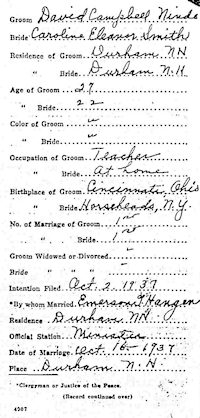 Groom David Campbell Hinds
Bride Caroline Eleanor Smith
Residence of Groom Durham NH
" Bride Durham N.H
Age of Groom 27
" Bride 22
Color of Groom w
" Bride w
Occupation of Groom Teacher
" Bride At home
Birthplace of Groom Cincinnati, Ohio
" Bride Horseheads, N.Y.
No. of Marriage of Groom 1st
" " Bride 1st
Groom Widowed or Divorced –
Bride " " " –
Intention Filed Oct 2 1937
*By whom Married Emerson Hangen
Residence Durham NH
Official Station Minister
Date of Marriage Oct. 16 - 1937
Place Durham N. H.
*Clergyman or Justice of the Peace.
(Record continued over)
4207